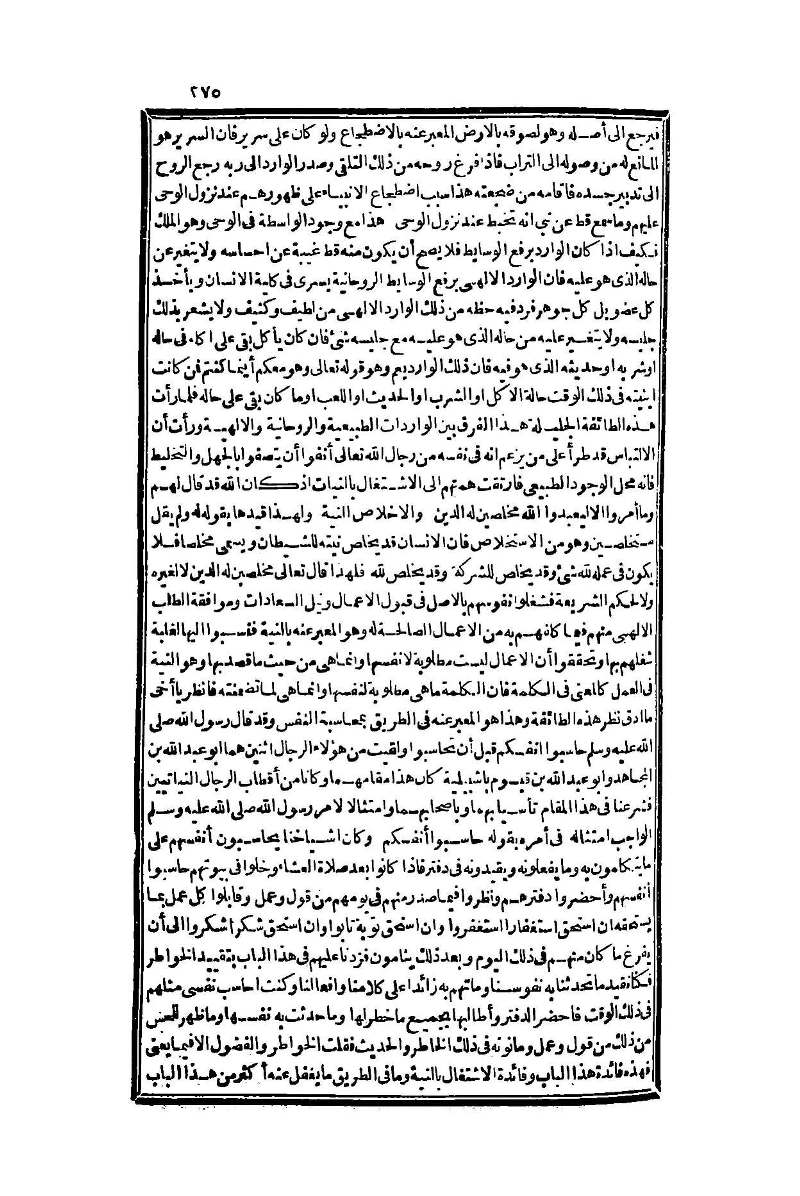 ٢٧٥
فيرجع الى أصله وهو لصوقه بالارض المعبر عنه بالاضطجاع ولو كان على سرير فان السرير هو
المانع له من وصوله الى التراب فاذا فرغ روحه من ذلك التلقى وصدر الوارد الى ربه رجع الروح
الى تدبير جسده فاقامه من ضجعته هذا سبب اضطجاع الانبياء على ظهورهم عند نزول الوحى
عليهم وما سمع قط عن نبى انه تخبط عند نزول الوحى هذا مع وجود الواسطة فى الوحى وهو الملك
فكيف اذا كان الوارد برفع الوسايط فلا يصح أن يكون منه قط غيبة عن احساسه ولا يتغير عن
حاله الذى هو عليه فان الوارد الالهى برفع الوسايط الروحانية يسرى فى كلية الانسان ويأخذ
كل عضو بل كل جوهر فرد فيه حظه من ذلك الوارد الالهى من لطيف وكثيف ولا يشعر بذلك
جليسه ولا يتغير عليه من حاله الذى هو عليه مع جليسه شئ فان كان يأكل بقى على اكله فى حاله
اوشربه اوحديثه الذى هو فيه فان ذلك الوارد يعم وهو قوله تعالى وهو معكم أينما كنتم فمن كانت
اينيته فى ذلك الوقت حالة الاكل او الشرب او الحديث او اللعب او ما كان بقى على حاله فلما رأت
هذه الطائفة الجليلة هذا الفرق بين الواردات الطبيعية والروحانية والالهية ورأت أن
الالتباس قد طرأ على من يزعم انه فى نفسه من رجال الله تعالى أنفوا أن يتصفوا بالجهل والتخليط
فانه محل الوجود الطبيعى فارتقت همتهم الى الاشتغال بالنيات اذ كان الله قد قال لهم
وما أمروا الا ليعبدوا الله مخلصين له الدين والاخلاص النية ولهذا قيدها بقوله له ولم يقل
مستخلصين وهو من الاستخلاص فان الانسان قد يخلص نيته للشيطان ويسمى مخلصا فلا
يكون فى عمله لله شئ وقد يخلص للشركة وقد يخلص لله فلهذا قال تعالى مخلصين له الدين لا لغيره
ولا لحكم الشريعة فشغلوا نفوسهم بالاصل فى قبول الاعمال ونيل السعادات وموافقة الطلب
الالهى منهم فيما كلفهم به من الاعمال الصالحة له وهو المعبر عنه بالنية فنسبوا اليها لغلبة
شغلهم بها وتحققوا أن الاعمال ليست مطلوبة لانفسها وانما هى من حيث ما قصد بها وهو النية
فى العمل كالمعنى فى الكلمة فان الكلمة ما هى مطلوبة لنفسها وانما هى لما تضمنته فانظر يا أخى
ما ادق نظر هذه الطائفة وهذا هو المعبر عنه فى الطريق بمحاسبة النفس وقد قال رسول الله صلى
الله عليه وسلم حاسبوا انفسكم قبل أن تحاسبوا ولقيت من هؤلاء الرجال اثنين هما ابو عبد الله بن
المجاهد وابو عبد الله بن قيوم باشبيلية كان هذا مقامهما وكانا من أقطاب الرجال النياتيين
فشرعنا فى هذا المقام تأسيا بهما وباصحابهما وامتثالا لامر رسول الله صلى الله عليه وسلم
الواجب امتثاله فى أمره بقوله حاسبوا أنفسكم وكان اشياخنا يحاسبون أنفسهم على
ما يتكلمون به وما يفعلونه ويقيدونه فى دفتر فاذا كانوا بعد صلاة العشاء وخلوا فى بيوتهم حاسبوا
أنفسهم وأحضروا دفترهم ونظروا فيما صدر منهم فى يومهم من قول وعمل وقابلوا كل عمل بما
يستحقه ان استحق استغفارا استغفروا وان استحق توبة تابوا وان استحق شكرا شكروا الى أن
يفرغ ما كان منهم فى ذلك اليوم وبعد ذلك ينامون فزدنا عليهم فى هذا الباب بتقييد الخواطر
فكنا نقيد ما تحدثنا به نفوسنا وما تهم به زائدا على كلامنا وافعالنا وكنت احاسب نفسى مثلهم
فى ذلك الوقت فاحضر الدفتر وأطالبها بجميع ما خطر لها وما حدثت به نفسها وما ظهر للحس
من ذلك من قول وعمل وما نوته فى ذلك الخاطر والحديث فقلت الخواطر والفضول الا فيما يعنى
فهذه فائدة هذا الباب وفائدة الاشتغال بالنية وما فى الطريق ما يغفل عنه أكثر من هذا الباب